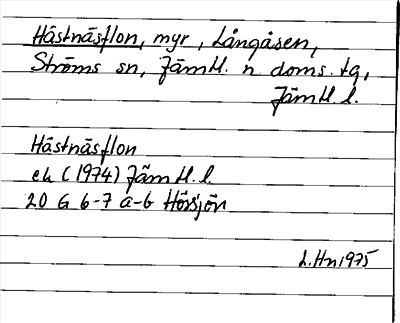 Hästnäsflon, myr, Långåsen,
Ströms sn, Jämtl. n. doms. tg,
Jämtl. l.
Hästnäsflon
ek (1974) Jämtl. l.
20 G 6-7 a-b Hörsjön
L.Hn 1975